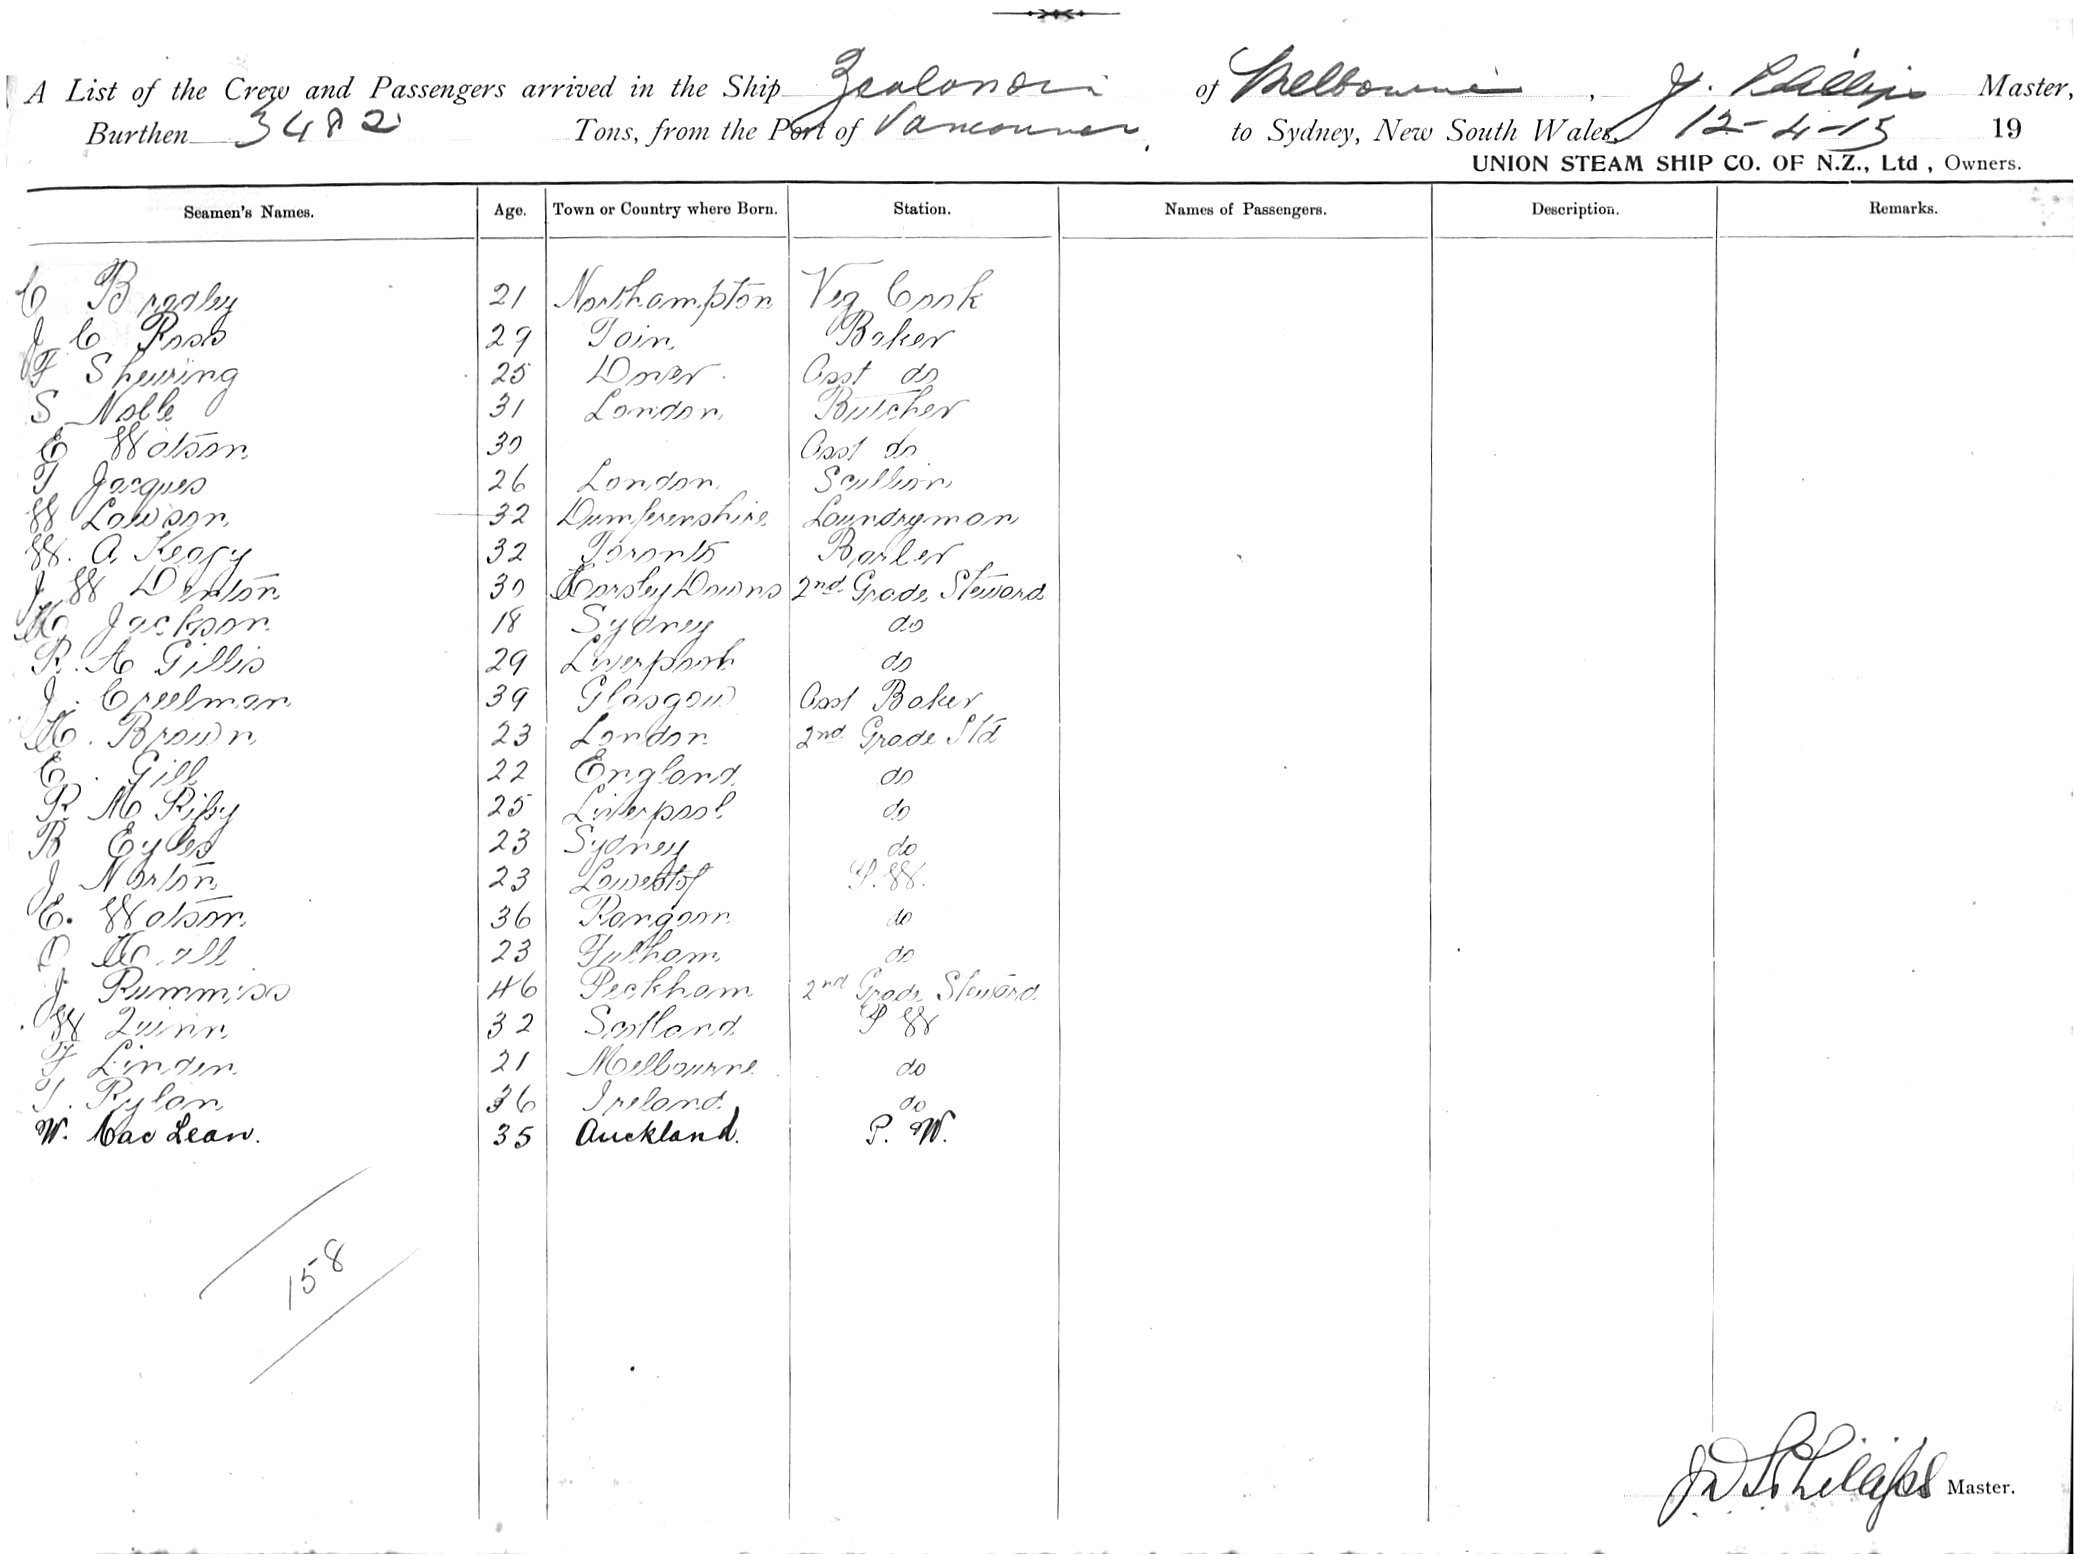 A List of the Crew and Passengers arrived in the Ship Zealandia of Melbourne, J. Phillips Master,
Burthen 3482 Tons, from the Port of Vancouver, to Sydney, New South Wales, 12-4-15 19
UNION STEAM SHIP CO. OF N.Z., Ltd, Owners.
Seamen's Names. Age. Town or Country where Born. Station. Names of Passengers. Description. Remarks.
C Bradley 21 Northampton Veg Cook
J C Ross 29 Tain Baker
F Sheuring 25 Dover Asst do
S Noble 31 London Butcher
E Watson 30 Asst do
T Jacques 26 London Scullion
W Lawson 32 Dumferenshire Laundryman
W. A. Keogy 32 Toronto Barber
J W Denton 30 Horsley Downs 2nd Grade Steward
H Jackson 18 Sydney do
R. H Gillis 29 Liverpool do
J. Creelman 39 Glasgow Asst Baker
H. Brown 23 London 2nd Grade Std
E. Gill 22 England do
R. H Riby 25 Liverpool do
B Eyles 23 Sydney do
J Norton 23 Lowestof P.W.
E. Watson 36 Rangoon do
Hall 23 Fulham do
J. Rummiss 46 Peckham 2nd Grade Steward
W Quinn 32 Scotland P W
F Linden 21 Melbourne do
T. Rylan 36 Ireland do
W. Mac Lean. 35 Auckland. P. W.
158
J D S Phillips Master.